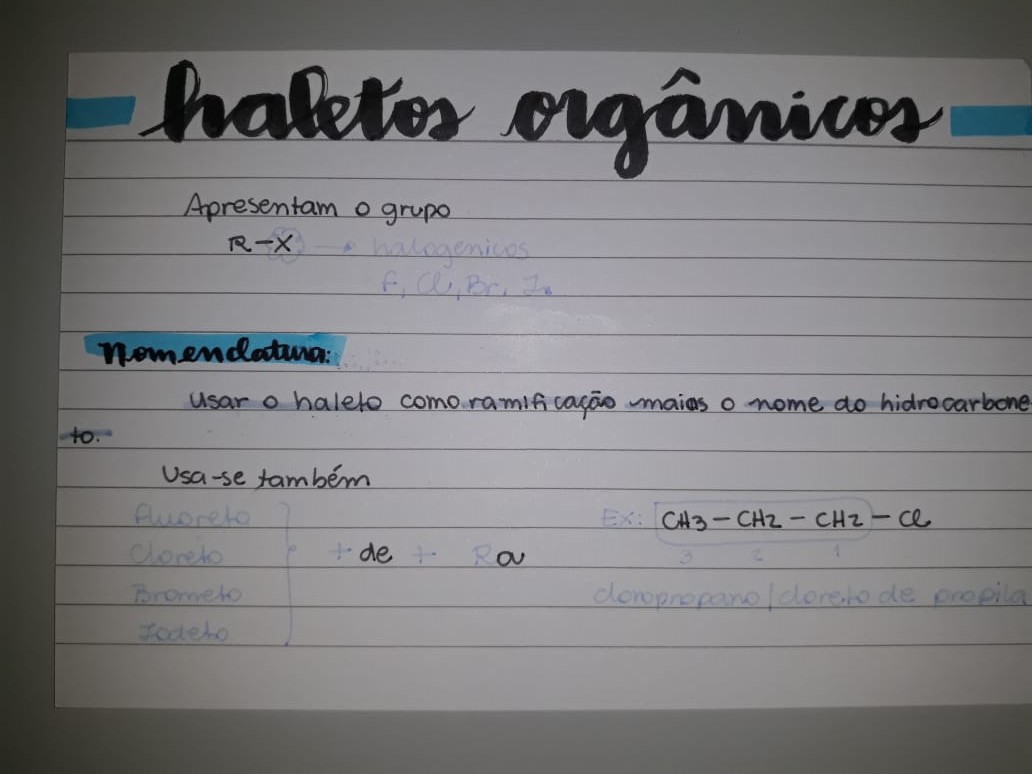 haletos orgânicos
Apresentam o grupo
R-X → halogênicos
F, Cl, Br, I.
Nomenclatura:
usar o haleto como ramificação maios o nome do hidrocarbone
to.
Usa-se também
Fluoreto
Cloreto
Brometo
Iodeto
+ de + Ra
Ex: CH3 - CH2 - CH2 - Cl
3 2 1
cloropropano/cloreto de propila